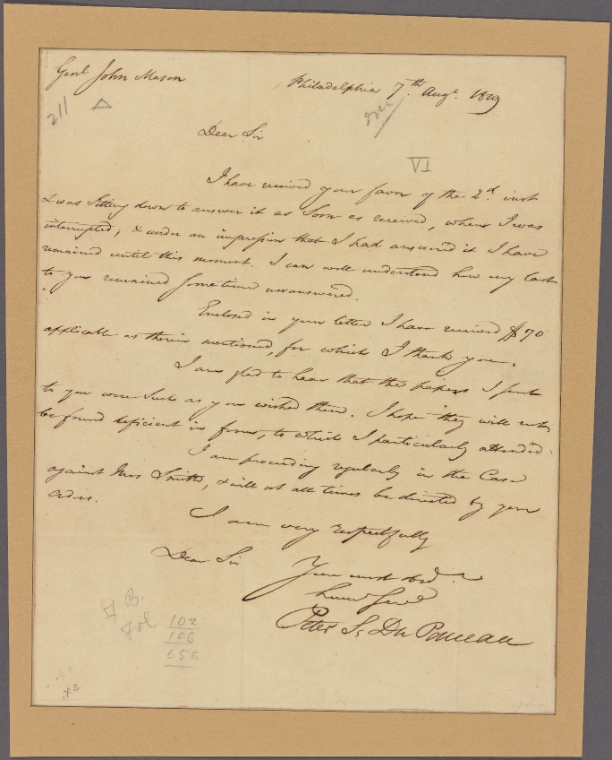 Genl John Mason
Philadelphia 7th Augt. 1819
211
Dear Sir
VI
I have received your favor of the 2d. inst
& was sitting down to answer it as soon as received, when I was
interrupted, & under an impression that I had answered it I have
remained until this moment. I can well understand how my last
to you remained some time unanswered.
Enclosed in your letter I have received $70
applicable as therein mentioned, for which I thank you.
I am glad to hear that the papers I sent
to you were such as you wished them. I hope they will not
be found deficient in form, to which I particularly attended.
I am proceeding regularly in the Case
against Mrs Smith, & will at all times be directed by your
advice.
I am very respectfully
Dear Sir
Your most obed.
humb Serv
Peter S. Du Ponceau
102
106